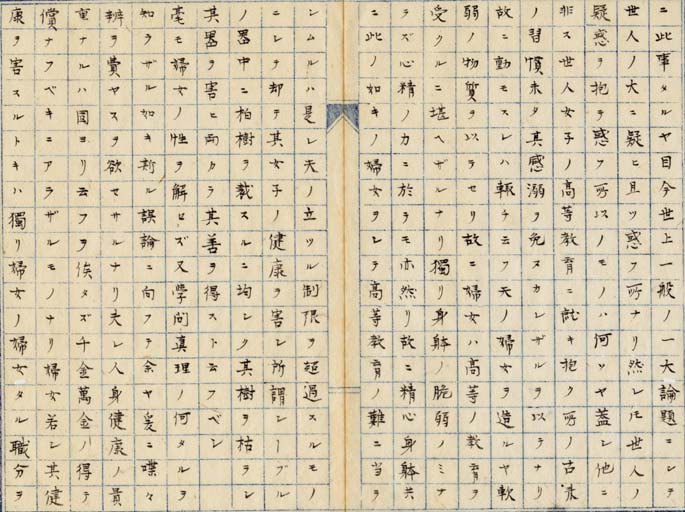 ニ此事タルヤ目今世上一般ノ一大論題ニシテ
世人ノ大ニ疑ヒ且ツ惑フ所ナリ然レモ世人ノ
疑惑ヲ抱ヲ惑フ所以ノモノハ何ツヤ蓋シ他ニ
非ス世人女子ノ高等教育ニ就キ抱ク所ノ古流
ノ習慣未タ其感溺ヲ免スカレザルヲ以テナリ
故ニ動モスレハ輙チ云フ天ノ婦女ヲ造ルヤ軟
弱ノ物質ヲ以テセリ故ニ婦女ハ高等ノ教育ヲ
受クルニ堪ヘザルナリ獨リ身躰ノ脆弱ノミナ
ラズ心精ノカニ於ラモ亦然リ故ニ精心身躰共
ニ此ノ如キノ婦女ヲシテ高等教育ノ難ニ当ラ
シムルハ是レ天ノ立ツル制限ヲ超過スルモノ
ニシテ却テ其女子ノ健康ヲ害シ所謂シーブル
ノ器中ニ柏樹ヲ栽スルニ均シク其樹ヲ枯ラシ
其器ヲ害ヒ両カラ其善ヲ得スト云フベシ
毫モ婦女ノ性ヲ解セズ又學問真理ノ何タルヲ
知ラザル如キ斯ル誤論ニ向フテ余ヤ爰ニ喋々
辨ヲ費ヤスヲ欲セサルナリ夫レ人身健康ノ貴
重ナルハ固ヨリ云フヲ俟タズ千金萬金ハ得テ
償ナフベキニアラザルモノナリ婦女若シ其健
康ヲ害スルトキハ獨リ婦女ノ婦女タル職分ヲ